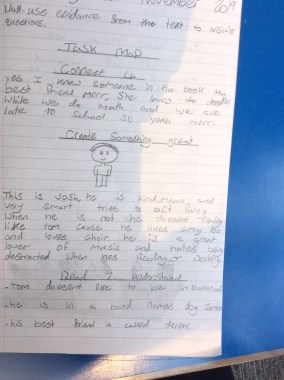 November 2019
Walt: use evidence from the text to answer
questions.
Task Map
Connect 4
yes I know someone in the book My
best friend merr, She loves to doodle
While we do math and we are
late to school so yeah merr.
Create Something great
This is Josh, he is kind, mean, and
very smart tries to
When he is not he doesent
like tom cause he likes
and loves choir he is a great
lover of Music and hates being
destracted when hes Reading or working
Read 7 understand
. Tom doesent like to be
. he is in a band names dog zombies
. his best friend is called derek